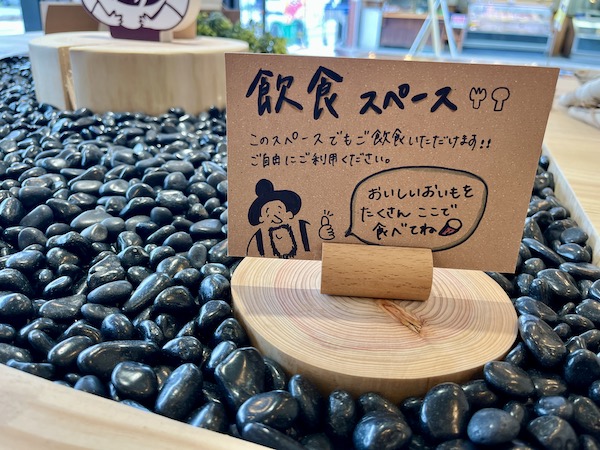 飲食 スペース
このスペースでもご飲食いただけます!!
ご自由にご利用ください。
おいしいおいもを
たくさん ここで
食べてね